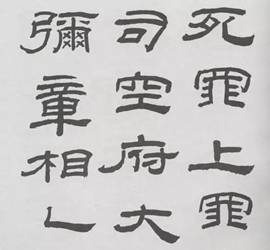 死罪上罪
司空府大
彌章相乙